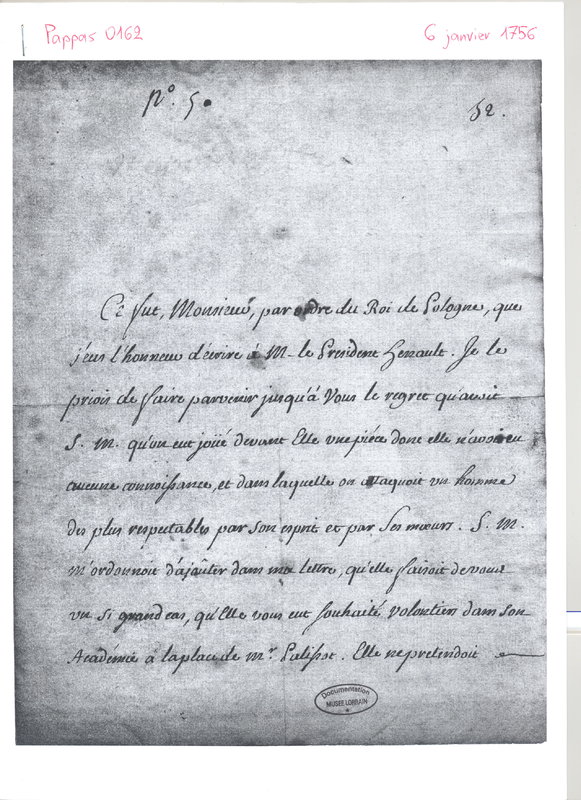 Pappas 0162
6 janvier 1756
N°. 5.
52.
Ce fut, Monsieur, par ordre du Roi de Pologne, que
j'eus l'honneur d'écrire à M. le President Henault. Je le
priois de faire parvenir jusqu'à Vous le regret qu'avoit
S. M. qu'on eut joüé devant Elle une piéce dont elle n'avoit eu
aucune connoissance, et dans laquelle on attaquoit un homme
des plus respectables par son esprit et par ses mœurs. S. M.
m'ordonnoit d'ajoûter dans ma lettre, qu'elle faisoit de vous
un si grand cas, qu'Elle vous eut souhaité volontiers dans son
Académie à la place de Mr. Palissot. Elle ne pretendoit
Documentation
MUSEE LORRAIN